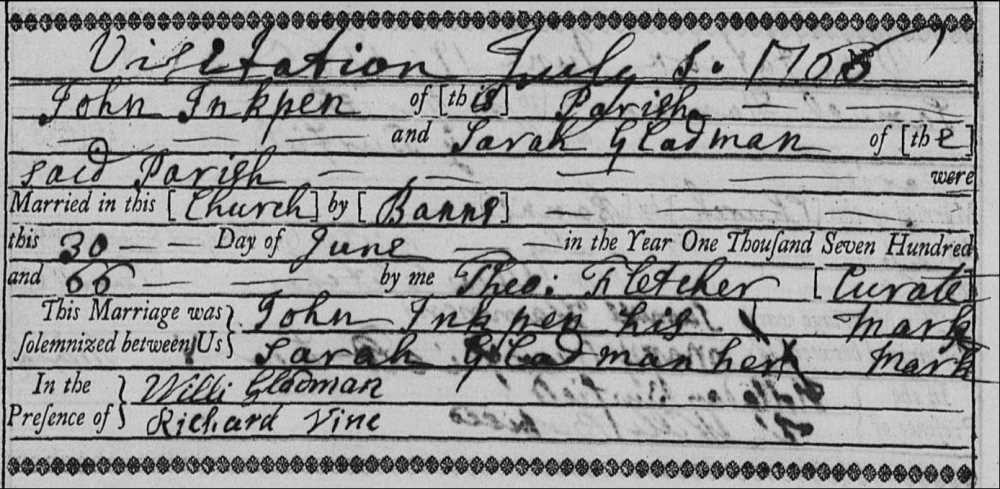 Visitation July 8. 1766
John Inkpen of [this] Parish
— — — and Sarah Gladman of [the]
said Parish — — — — were
Married in this [Church] by [Banns] — — —
this 30 — — Day of June — — in the Year One Thouſand Seven Hundred
and 66 — — — by me Theo: Fletcher [Curate]
This Marriage was ſolemnized between Us } John Inkpen his X Mark
Sarah Gladman her X Mark
In the Preſence of } Willi Gladman
Richard Vine